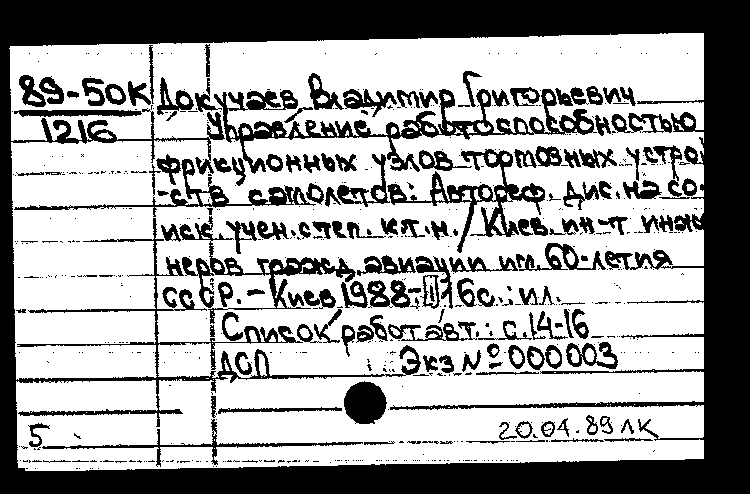 89-50К Докучаев Владимир Григорьевич
1216 Управление работоспособностью
фрикционных узлов тормозных устрой
-ств самолетов: Автореф. дис. на со-
иск. учен. степ. к.т.н. / Киев. ин-т инже
неров гражд. авиации им. 60-летия
СССР. - Киев 1988- 16с.: ил.
Список работ авт.: с.14-16
ДСП Экз № 000003
5
20.04.89 ЛК